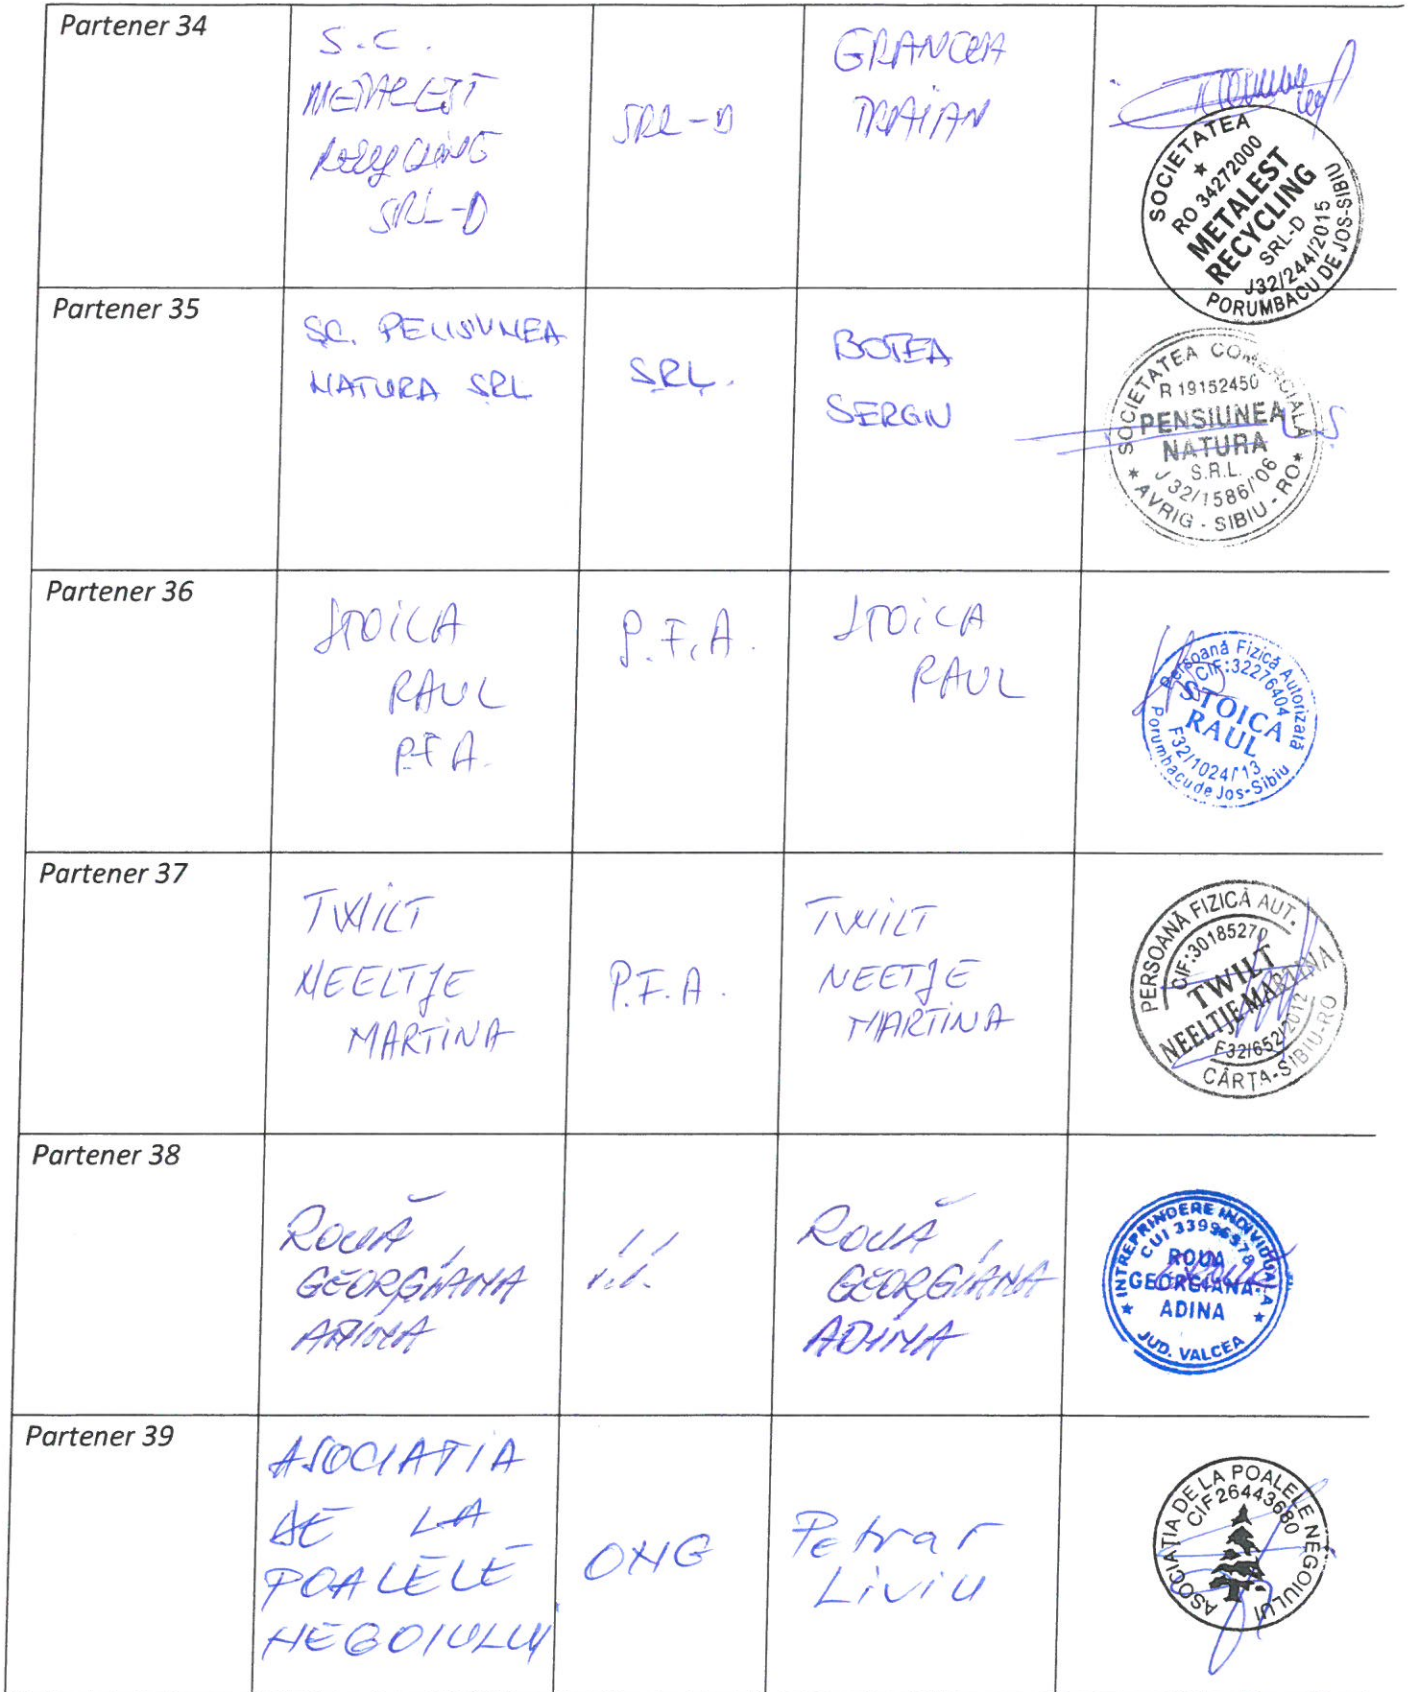 Partener 34
S.C.
METALEST
RECYCLING
SRL-D
SRL-D
GRANCEA
TRAIAN
SOCIETATEA
★
RO 34272000
METALEST
RECYCLING
SRL-D
J32/244/2015
PORUMBACU DE JOS-SIBIU
Partener 35
SC. PENSIUNEA
NATURA SRL
SRL.
BOTEA
SERGIU
SOCIETATEA COMERCIALĂ
R 19152450
PENSIUNEA
NATURA
S.R.L.
J 32/1586/'06
★ AVRIG - SIBIU - RO ★
Partener 36
STOICA
RAUL
P.F.A.
P.F.A.
STOICA
RAUL
Persoană Fizică Autorizată
CIF:32276404
STOICA
RAUL
F32/1024/'13
Porumbacu de Jos-Sibiu
Partener 37
TWILT
NEELTJE
MARTINA
P.F.A.
TWILT
NEETJE
MARTINA
PERSOANĂ FIZICĂ AUT.
CIF:30185270
TWILT
NEELTJE MARTINA
F32/652/2012
CÂRȚA-SIBIU-RO
Partener 38
ROUĂ
GEORGIANA
ADINA
I.I.
ROUĂ
GEORGIANA
ADINA
INTREPRINDERE INDIVIDUALA
CUI 33996978
ROUA
GEORGIANA-
ADINA
★ JUD. VALCEA ★
Partener 39
ASOCIATIA
DE LA
POALELE
NEGOIULUI
ONG
Petrar
Liviu
ASOCIAȚIA DE LA POALELE NEGOIULUI
CIF26443680